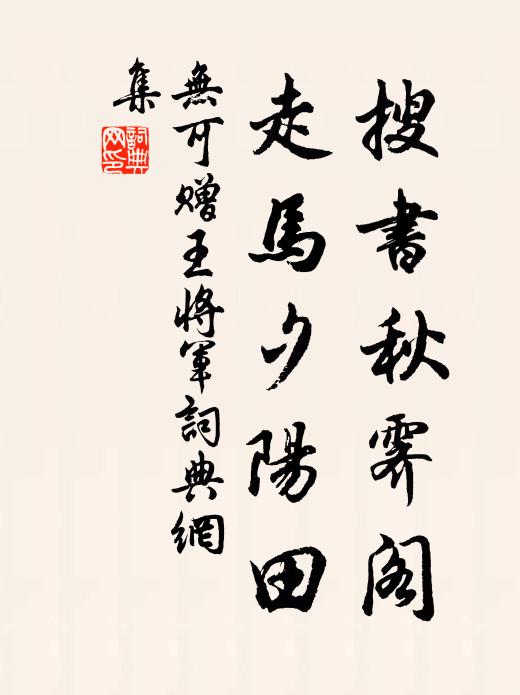 搜書秋霽閣
走馬夕陽田
無可贈王將軍詞典網
集
詞典網印